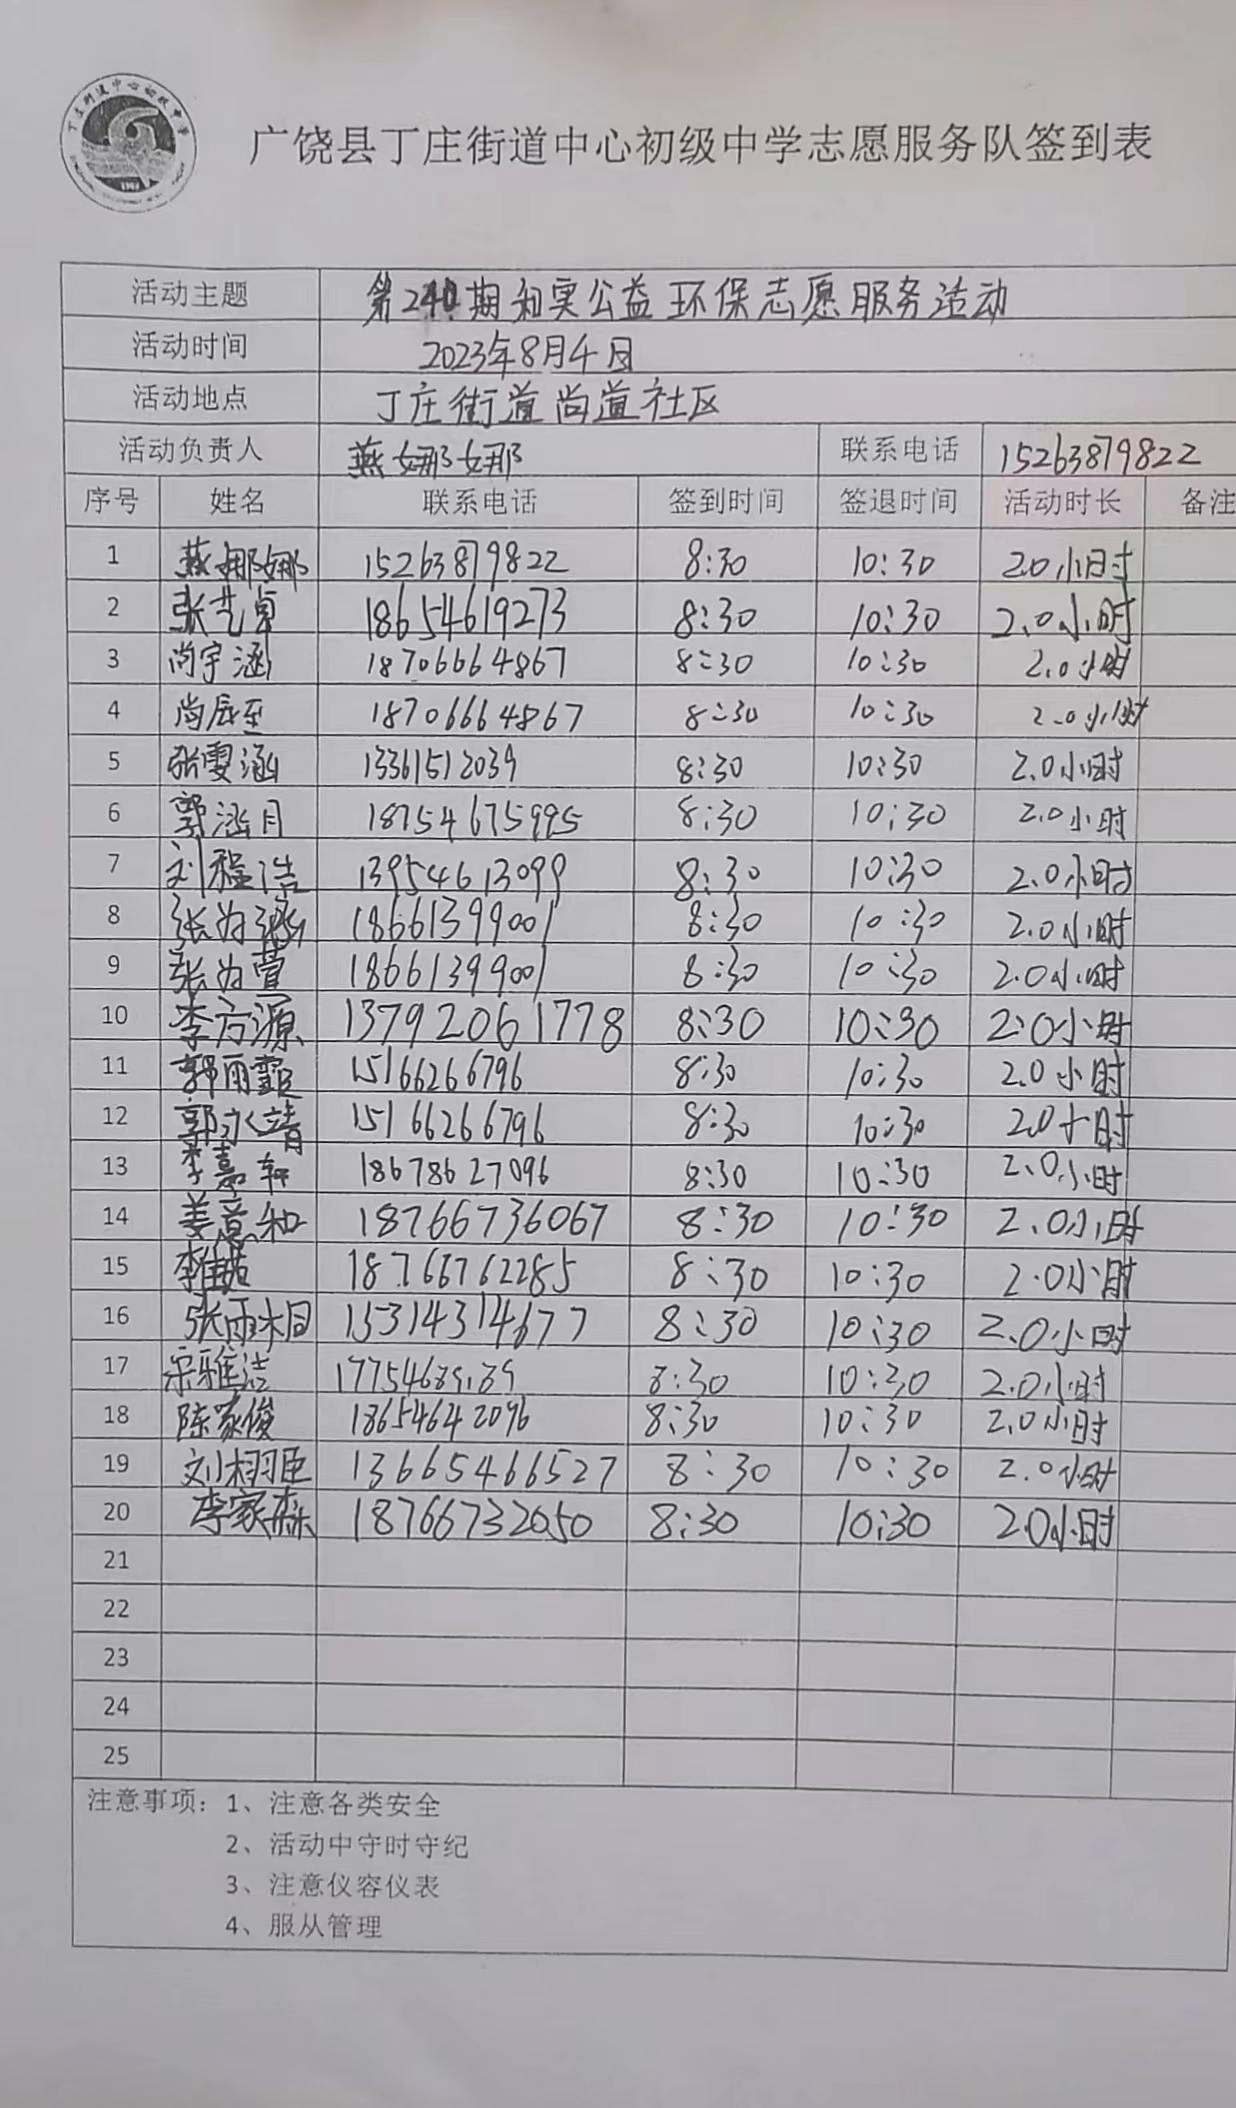 广饶县丁庄街道中心初级中学志愿服务队签到表
活动主题 第241期和实公益环保志愿服务活动
活动时间 2023年8月4日
活动地点 丁庄街道尚道社区
活动负责人 燕娜娜 联系电话 15263879822
序号 姓名 联系电话 签到时间 签退时间 活动时长 备注
1 燕娜娜 15263879822 8:30 10:30 2.0小时
2 张艺卓 18654619273 8:30 10:30 2.0小时
3 尚宇涵 18706664867 8:30 10:30 2.0小时
4 尚辰至 18706664867 8:30 10:30 2.0小时
5 张雯涵 13361512039 8:30 10:30 2.0小时
6 郭涵月 18754675995 8:30 10:30 2.0小时
7 刘程浩 13954613099 8:30 10:30 2.0小时
8 张为涵 18661399001 8:30 10:30 2.0小时
9 张为萱 18661399001 8:30 10:30 2.0小时
10 李方源 13792061778 8:30 10:30 2.0小时
11 郭雨霏 15166266796 8:30 10:30 2.0小时
12 郭冰靖 15166266796 8:30 10:30 2.0小时
13 李嘉轩 18678627096 8:30 10:30 2.0小时
14 姜意和 18766736067 8:30 10:30 2.0小时
15 李佳茹 18766762285 8:30 10:30 2.0小时
16 张雨桐 15314314677 8:30 10:30 2.0小时
17 宋雅洁 8:30 10:30 2.0小时
18 陈家俊 18654642096 8:30 10:30 2.0小时
19 刘栩臣 13665466527 8:30 10:30 2.0小时
20 李家森 18766732050 8:30 10:30 2.0小时
21
22
23
24
25
注意事项：1、注意各类安全
2、活动中守时守纪
3、注意仪容仪表
4、服从管理